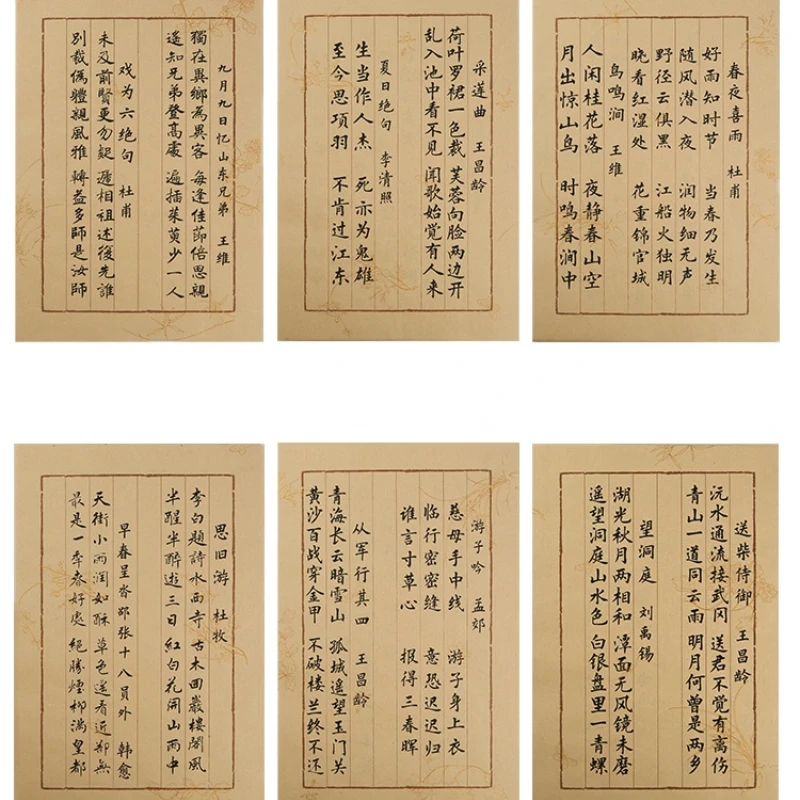 九月九日忆山东兄弟 王维
獨在異鄉為異客 每逢佳節倍思親
遥知兄弟登高處 遍插茱萸少一人
戏为六绝句 杜甫
未及前賢更勿疑 遞相祖述復先誰
别裁偽體親風雅 轉益多師是汝師
采莲曲 王昌龄
荷叶罗裙一色裁 芙蓉向脸两边开
乱入池中看不见 闻歌始觉有人来
夏日绝句 李清照
生当作人杰 死亦为鬼雄
至今思项羽 不肯过江东
春夜喜雨 杜甫
好雨知时节 当春乃发生
随风潜入夜 润物细无声
野径云俱黑 江船火独明
晓看红湿处 花重锦官城
鸟鸣涧 王维
人闲桂花落 夜静春山空
月出惊山鸟 时鸣春涧中
思旧游 杜牧
李白題詩水西寺 古木回巖樓閣風
半醒半醉遊三日 紅白花開山雨中
早春呈水部张十八员外 韩愈
天街小雨润如酥 草色遥看近却無
最是一年春好處 絕勝煙柳满皇都
游子吟 孟郊
慈母手中线 游子身上衣
临行密密缝 意恐迟迟归
谁言寸草心 报得三春晖
从军行其四 王昌龄
青海长云暗雪山 孤城遥望玉门关
黄沙百战穿金甲 不破楼兰终不还
送柴侍御 王昌龄
沅水通流接武冈 送君不觉有离伤
青山一道同云雨 明月何曾是两乡
望洞庭 刘禹锡
湖光秋月两相和 潭面无风镜未磨
遥望洞庭山水色 白银盘里一青螺